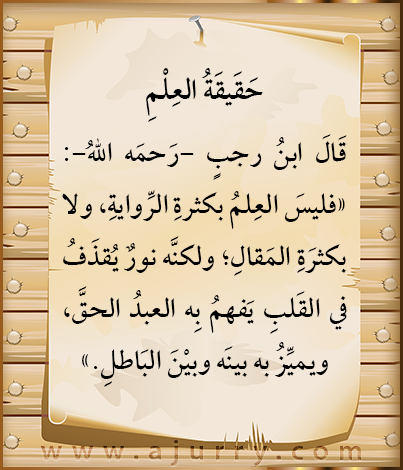 حَقَيقَةُ العِلْمِ
قَالَ ابنُ رجبٍ -رَحمَه اللهُ-:
«فليسَ العِلمُ بكثرةِ الرِّوايةِ، ولا
بكثرَةِ المَقالِ؛ ولكنَّه نورٌ يُقذَفُ
في القَلبِ يَفهمُ بِه العبدُ الحقَّ،
ويميِّزُ به بينَه وبيْنَ البَاطلِ.»
www.ajurry.com